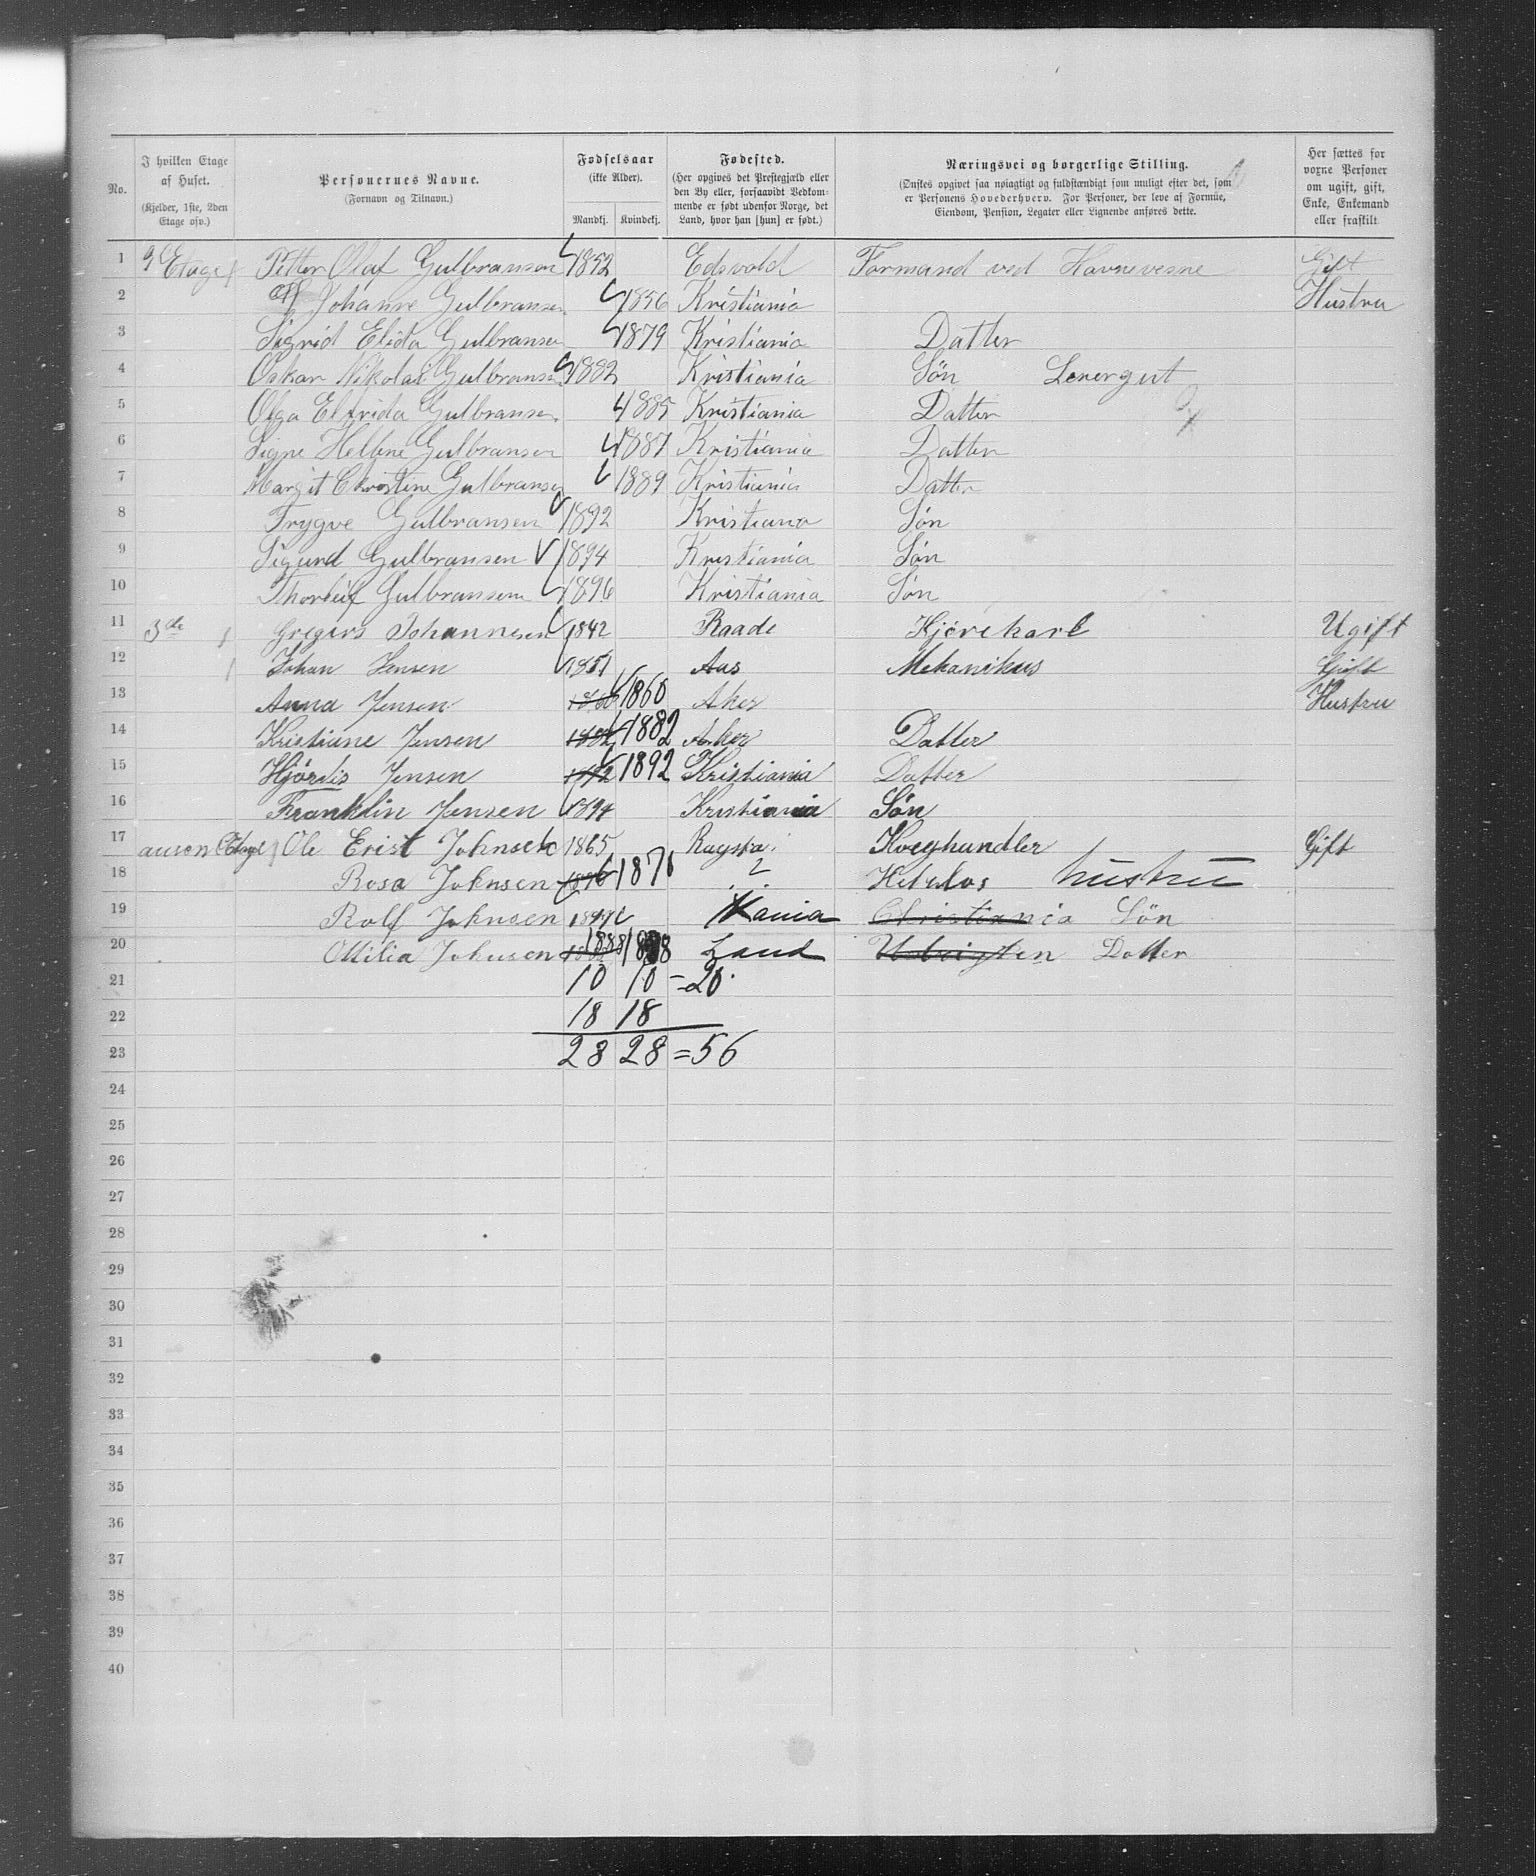 No.
I hvilken Etage af Huset.
(Kjelder, 1ste, 2den Etage osv.)
Personernes Navne.
(Fornavn og Tilnavn.)
Fødselsaar
(ikke Alder).
Mandkj. Kvindekj.
Fødested.
(Her opgives det Prestegjæld eller den By eller, forsaavidt Vedkommende er født udenfor Norge, det Land, hvor han [hun] er født.)
Næringsvei og borgerlige Stilling.
(Ønskes opgivet saa nøiagtigt og fuldstændigt som muligt efter det, som er Personens Hovederhverv. For Personer, der leve af Formue, Eiendom, Pension, Legater eller Lignende anføres dette.)
Her sættes for vorne Personer om ugift, gift, Enke, Enkemand eller fraskilt
1 Etage Petter Olaf Gulbransen 1852 Edsvold Formand ved Havnevesne Gift
2 Johanne Gulbransen 1856 Kristiania Hustru
3 Sigrid Elida Gulbransen 1879 Kristiania Datter
4 Oskar Nikolai Gulbransen 1882 Kristiania Søn
5 Olga Elfrida Gulbransen 1885 Kristiania Datter
6 Signe Hellene Gulbransen 1887 Kristiania Datter
7 Margit Christine Gulbransen 1889 Kristiania Datter
8 Trygve Gulbransen 1892 Kristiana Søn
9 Sigurd Gulbransen 1894 Kristiania Søn
10 Thorleif Gulbransen 1896 Kristiania Søn
11 3de Gregers Johannesen 1842 Raade Kjørekarl Ugift
12 Johan Jensen 1851 Aas Mekanikus Gift
13 Anna Jensen 1860 1860 Aker Hustru
14 Kristiane Jensen 1882 1882 Aker Datter
15 Hjørdis Jensen 1892 1892 Kristiania Datter
16 Franklin Jensen 1894 Kristiania Søn
17 Etage Ole Johnsen 1865 Kvæghandler Gift
18 Rosa Johnsen 1876 1876 ? Hustru
19 Rolf Johnsen Kania Christiania Søn
20 Ottilia Johnsen 1888 Land Datter
21 10 10 = 20
22 18 18
23 28 28 = 56
24
25
26
27
28
29
30
31
32
33
34
35
36
37
38
39
40